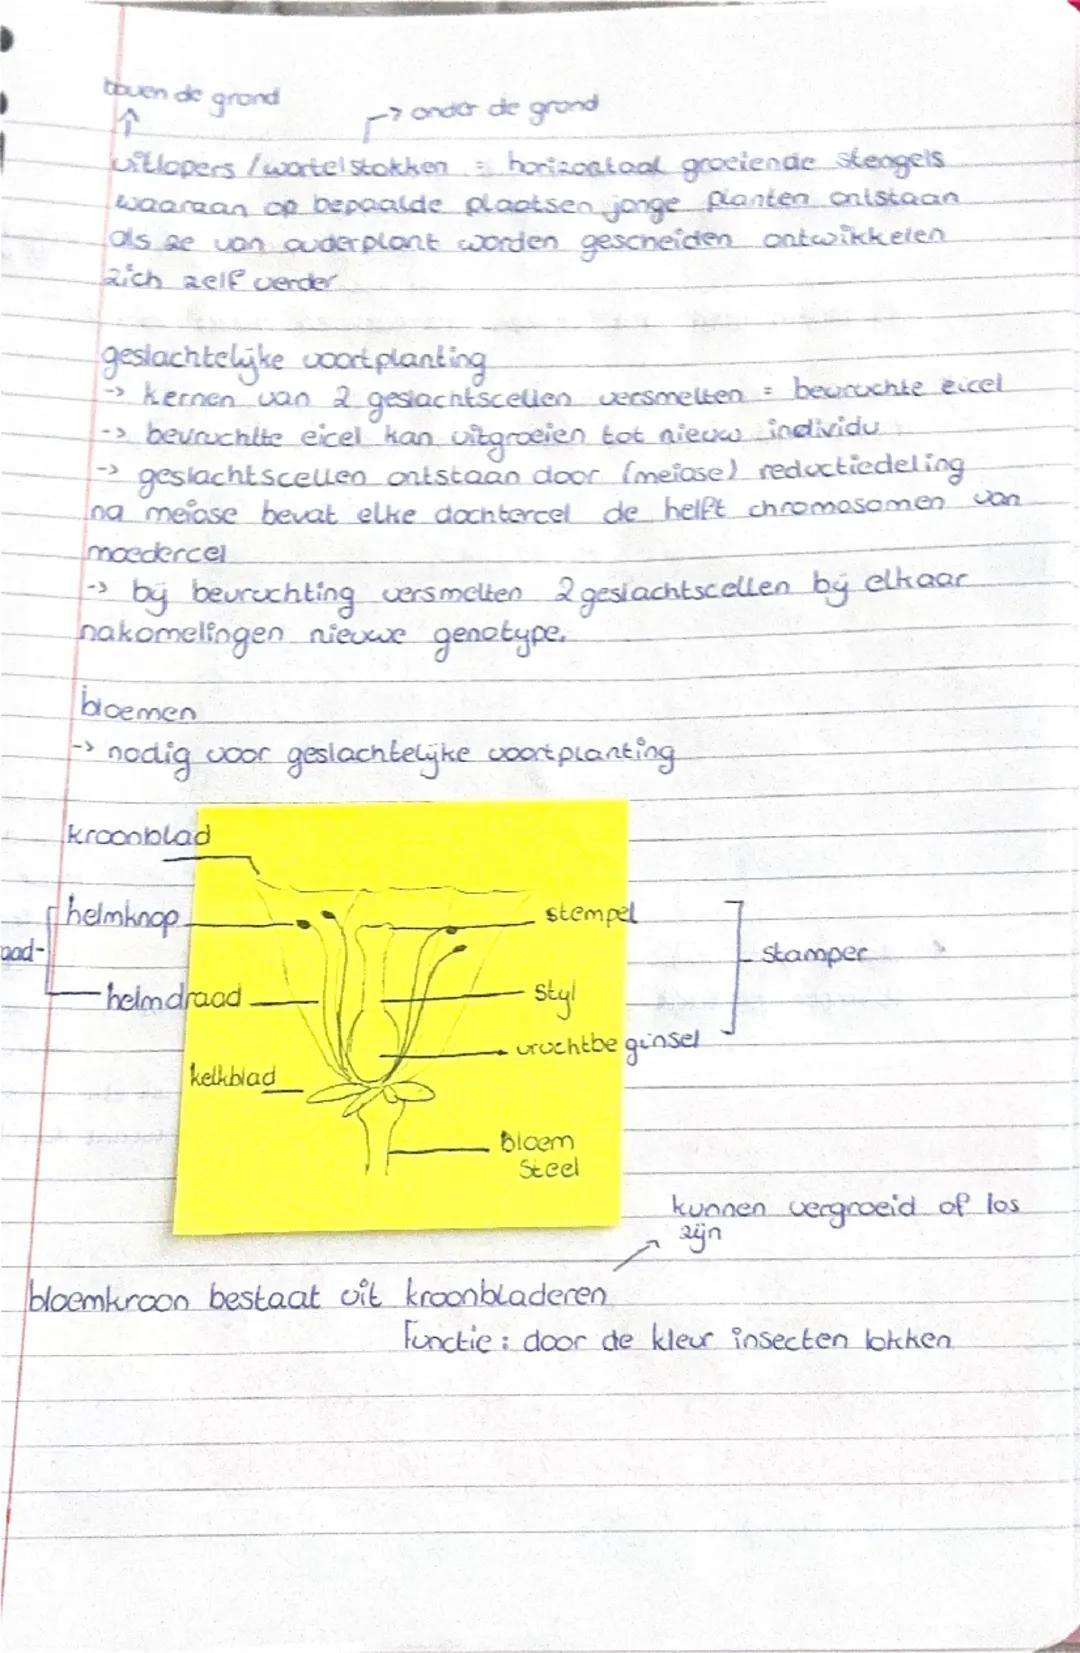 boven de grond
↑ → onder de grond
uitlopers / wortelstokken = horizontaal groeiende stengels
waaraan op bepaalde plaatsen jonge planten ontstaan
als ze van ouderplant worden gescheiden ontwikkelen
zich zelf verder
geslachtelijke voortplanting
-> kernen van 2 geslachtscellen versmelten = bevruchte eicel
-> bevruchte eicel kan uitgroeien tot nieuw individu
-> geslachtscellen ontstaan door (meiose) reductiedeling
na meiose bevat elke dochtercel de helft chromosomen van
moedercel
-> bij bevruchting versmelten 2 geslachtscellen bij elkaar
nakomelingen nieuwe genotype.
bloemen
-> nodig voor geslachtelijke voortplanting
kroonblad
helmknop
stempel
aad-
stamper
helmdraad
styl
vruchtbeginsel
kelkblad
bloem
steel
kunnen vergroeid of los
zijn
bloemkroon bestaat uit kroonbladeren
functie: door de kleur insecten lokken